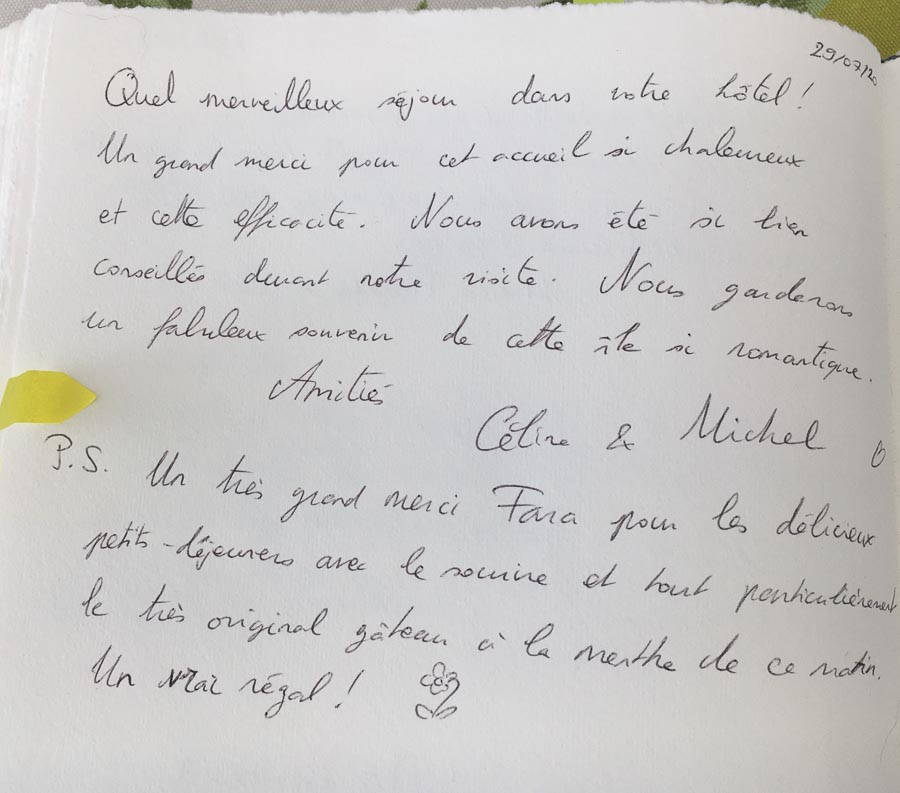 29/07/20
Quel merveilleux séjour dans votre hôtel !
Un grand merci pour cet accueil si chaleureux
et cette efficacité. Nous avons été si bien
conseillés durant notre visite. Nous garderons
un fabuleux souvenir de cette île si romantique.
Amitiés
Céline & Michel
P.S. Un très grand merci Fara pour les délicieux
petits-déjeuners avec le sourire et tout particulièrement
le très original gâteau à la menthe de ce matin.
Un vrai régal !